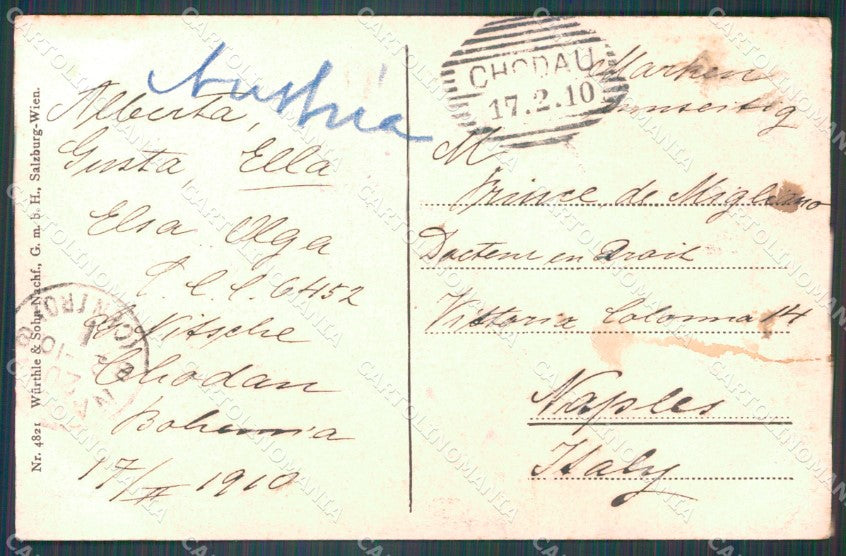 Austria
Alberta,
Gusta, Ella
Elsa Olga
6452
Nitsche
Chodau
Bohemia
17/II 1910
Nr. 4821 Würthle & Sohn Nachf., G. m. b. H., Salzburg-Wien.
CHODAU
17.2.10
Marken
M
Prince de Migliano
Docteur en Droit
Vittoria Colonna 14
Naples
Italy
CARTOLINOMANIA